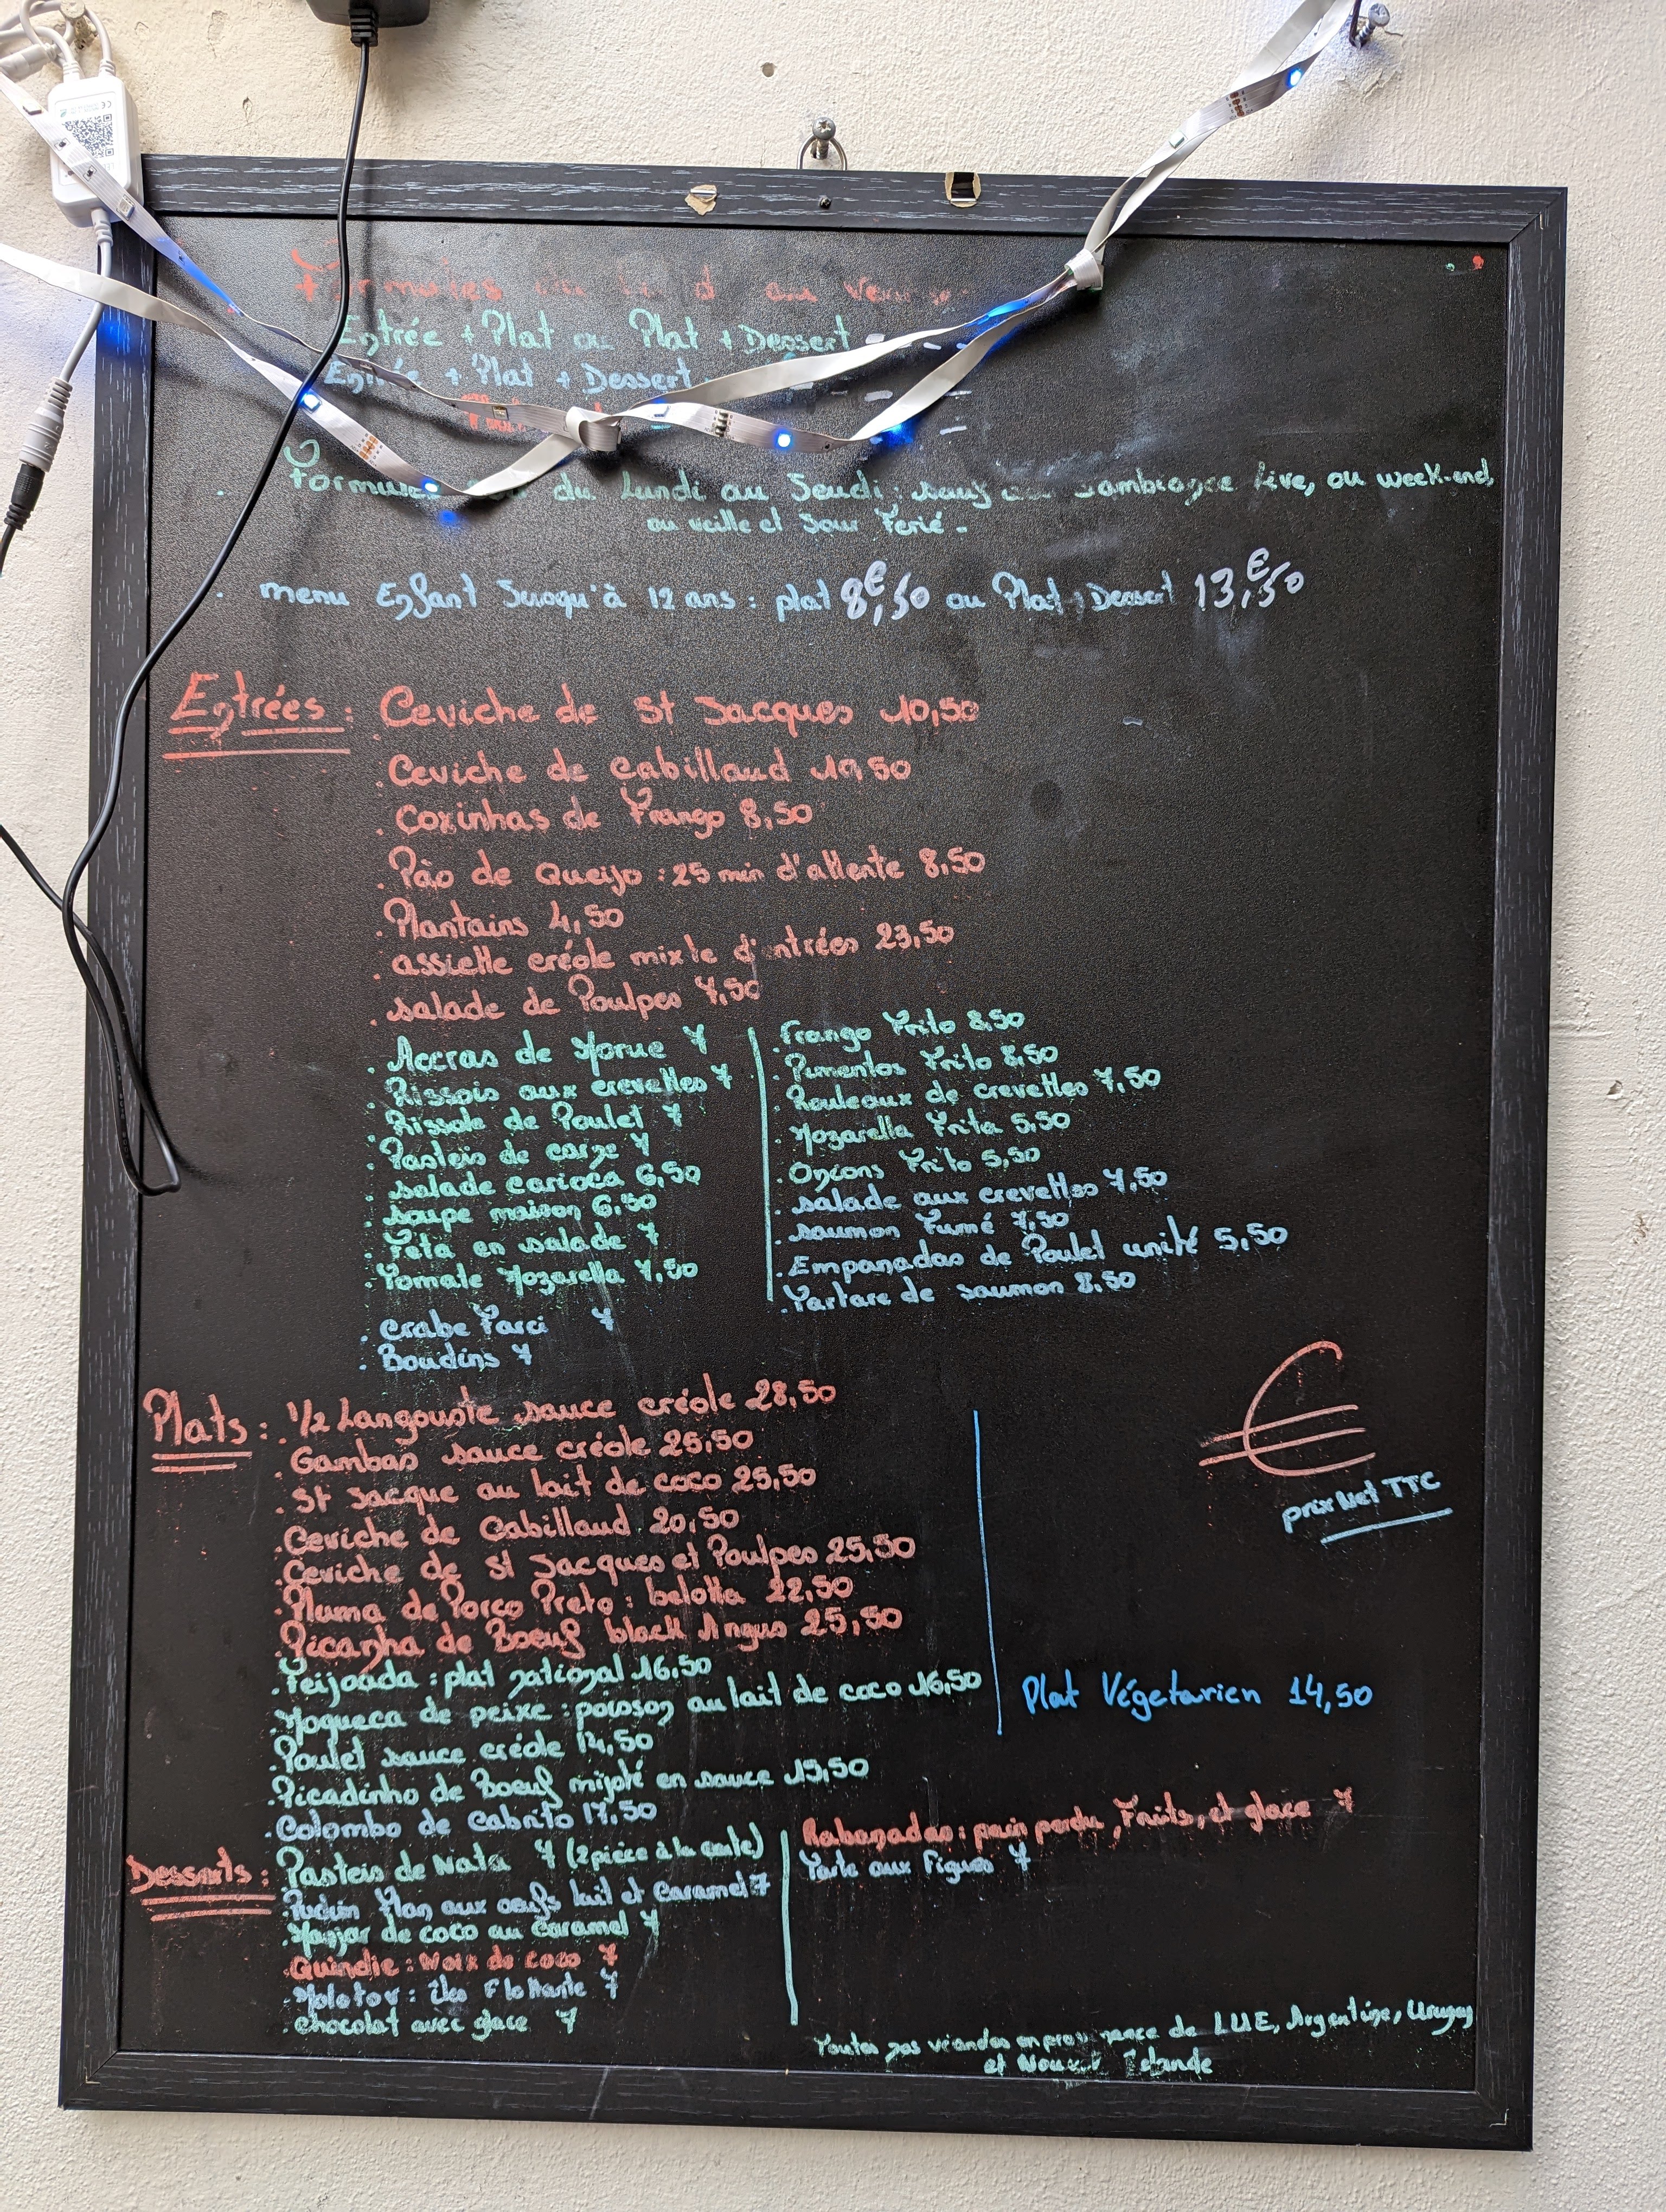 Formules
Entrée + Plat ou Plat + Dessert
Entrée + Plat + Dessert
Formules du Lundi au Jeudi : sauf Live, ou week-end,
ou veille et Jour Ferié -
menu Enfant Jusqu'à 12 ans : plat 8€,50 ou Plat + Dessert 13€,50
Entrées : Ceviche de St Jacques 10,50
. Ceviche de Cabillaud 50
. Coxinhas de Frango 8,50
. Pão de Queijo : 25 min d'attente 8,50
. Plantains 4,50
. assiette créole mixte d' ntrées 23,50
. salade de Poulpes 7,50
. Accras de Morue 7
. Rissois aux crevettes 7
. Rissole de Poulet 7
. Pasteis de carne 7
. salade carioca 6,50
. soupe maison 6,50
. Feta en salade 7
. Tomate Mozarella 7,50
. crabe Farci 7
. Boudins 7
. Frango Frito 8,50
. Pimentos Frito 8,50
. Rouleaux de crevettes 7,50
. Mozarella Frita 5,50
. Onions Frito 5,50
. salade aux crevettes 7,50
. saumon Fumé 7,50
. Empanadas de Poulet unité 5,50
. Tartare de saumon 8,50
Plats : . 1/2 Langouste sauce créole 28,50
. Gambas sauce créole 25,50
. St Jacque au lait de coco 25,50
. Ceviche de Cabillaud 20,50
. Ceviche de St Jacques et Poulpes 25,50
. Pluma de Porco Preto : belotta 22,50
. Picanha de Boeuf black Angus 25,50
. Feijoada : plat national 16,50
. Moqueca de peixe : poisson au lait de coco 16,50
. Poulet sauce créole 14,50
. Picadinho de Boeuf mijoté en sauce 15,50
. Colombo de Cabrito 17,50
€
prix Net TTC
Plat Végetarien 14,50
Desserts : . Pasteis de Nata 7 (2 pièce à la carte)
. Pudim Flan aux oeufs lait et Caramel 7
. Manjar de coco au Caramel 7
. Quindie : Noix de coco 7
. Molotov : Iles Flottante 7
. chocolat avec glace 7
. Rabanadas : pain perdu, Fruits, et glace 7
. Tarte aux Figues 7
Toutes nos viandes en provenance de L'UE, Argentine, Uruguay
et Zelande